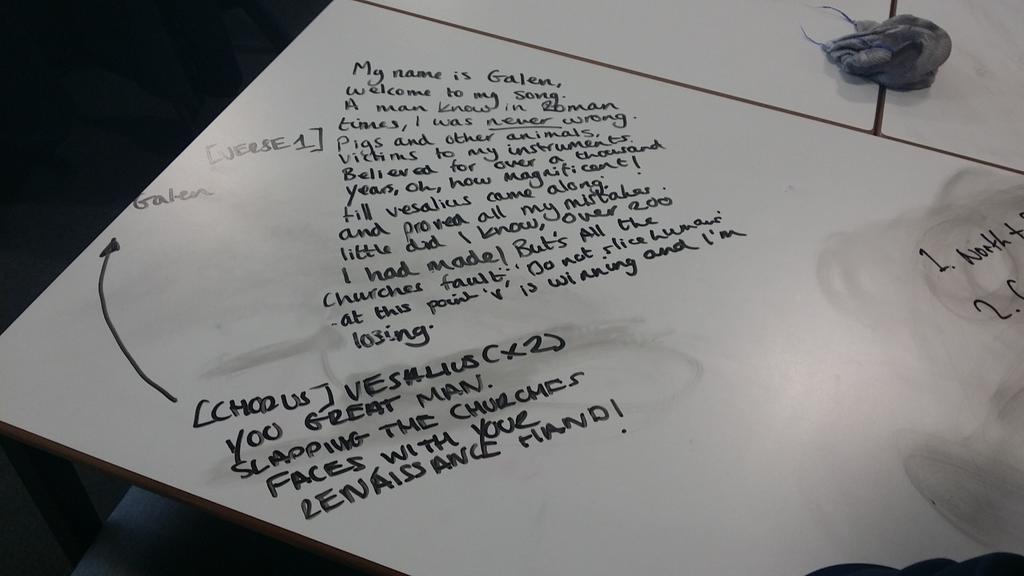 My name is Galen,
welcome to my song.
A man know in Roman
times, I was never wrong.
[VERSE 1]
Pigs and other animals,
victims to my instruments.
Believed for over a thousand
years, oh, how magnificent!
till vesalius came along
and proved all my mistakes.
little did I know, over 200
I had made! But's All the
Churches fault; 'Do not slice humans'
-at this point 'V' is winning and I'm
losing.
Galen
[CHORUS] VESALIUS (x2)
YOU GREAT MAN.
SLAPPING THE CHURCHES
FACES WITH YOUR
RENAISSANCE HAND!
1. North
2.